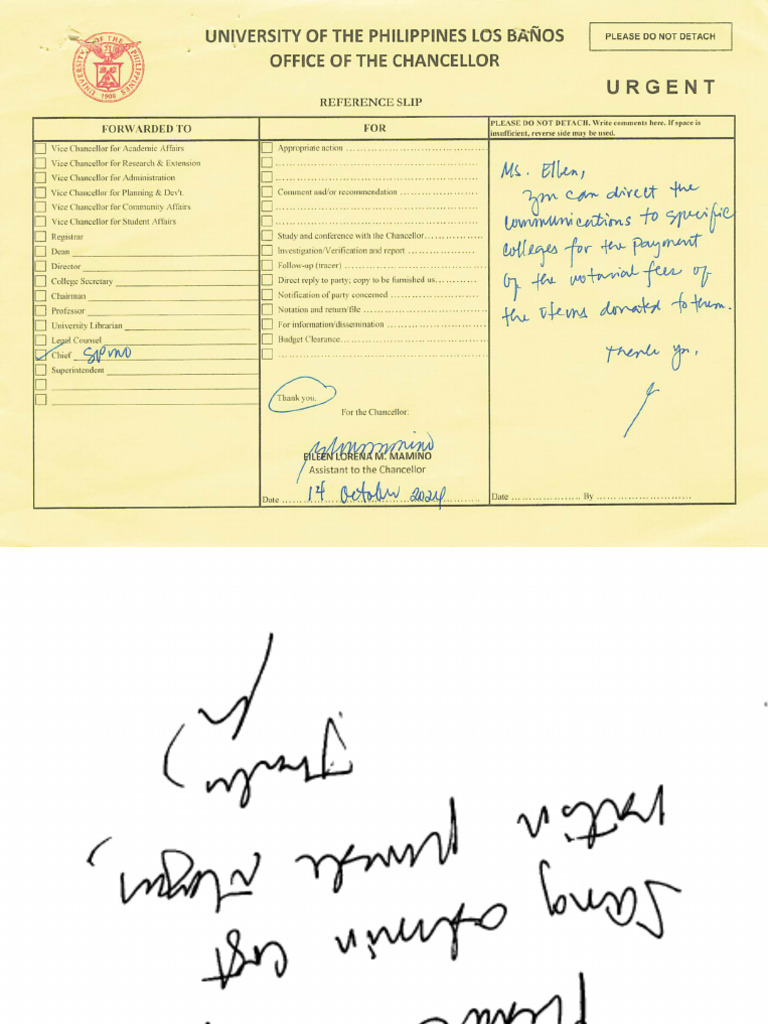 UNIVERSITY OF THE PHILIPPINES LOS BAÑOS
OFFICE OF THE CHANCELLOR
PLEASE DO NOT DETACH
URGENT
UNIVERSITY OF THE PHILIPPINES
1908
REFERENCE SLIP
FORWARDED TO
Vice Chancellor for Academic Affairs
Vice Chancellor for Research & Extension
Vice Chancellor for Administration
Vice Chancellor for Planning & Dev't.
Vice Chancellor for Community Affairs
Vice Chancellor for Student Affairs
Registrar
Dean
Director
College Secretary
Chairman
Professor
University Librarian
Legal Counsel
Chief SPMO
Superintendent
FOR
Appropriate action
Comment and/or recommendation
Study and conference with the Chancellor
Investigation/Verification and report
Follow-up (tracer)
Direct reply to party; copy to be furnished us
Notification of party concerned
Notation and return/file
For information/dissemination
Budget Clearance
Thank you.
For the Chancellor:
EILEEN LORENA M. MAMINO
Assistant to the Chancellor
Date 14 October 2024
PLEASE DO NOT DETACH. Write comments here. If space is
insufficient, reverse side may be used.
Ms. Ellen,
You can direct the
communications to specific
colleges for the payment
of the notarial fees of
the items donated to them.
Thank you.
Date By
cost